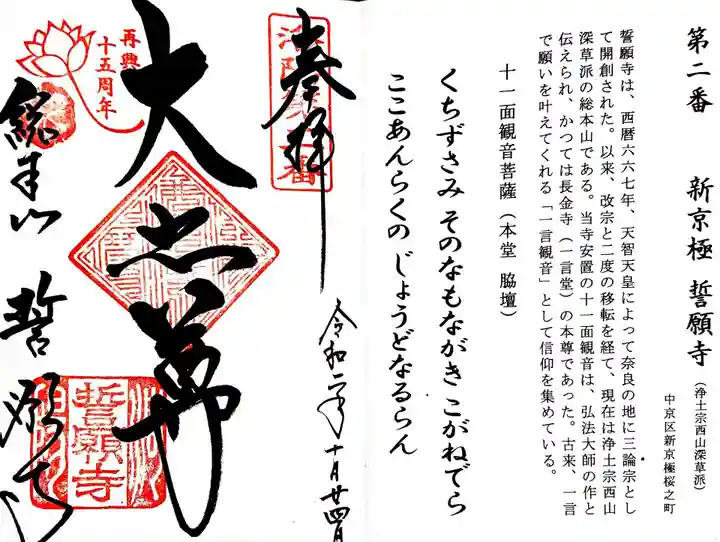 第二番 新京極 誓願寺（浄土宗西山深草派）
中京区新京極桜之町
誓願寺は、西暦六六七年、天智天皇によって奈良の地に三論宗とし
て開創された。以来、改宗と二度の移転を経て、現在は浄土宗西山
深草派の総本山である。当寺安置の十一面観音は、弘法大師の作と
伝えられ、かつては長金寺（一言堂）の本尊であった。古来、一言
で願いを叶えてくれる「一言観音」として信仰を集めている。
十一面観音菩薩（本堂 脇壇）
くちずさみ そのなもながき こがねでら
ここあんらくの じょうどなるらん
奉拝
洛陽第二番
令和二年十月廿四日
大悲尊
再興
十五周年
総本山 誓願寺
誓願寺